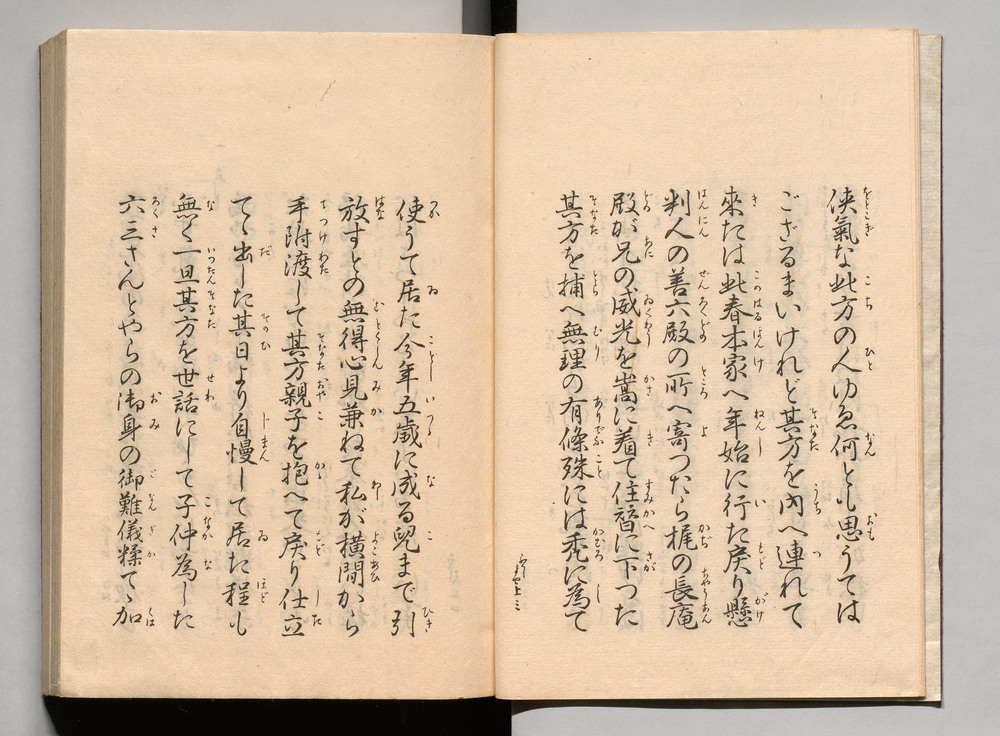 侠氣な此方の人ゆゑ何とも思うては
ござるまいけれど其方を内へ連れて
來たは此春本家へ年始に行た戻り懸
判人の善六殿の所へ寄つたら梶の長庵
殿が兄の威光を嵩に着て住替に下つた
其方を捕へ無理の有條殊には禿に為て
使うて居た今年五歳に成る兒まで引
放すとの無得心見兼ねて私が横間から
手附渡して其方親子を抱へて戻り仕立
てゝ出した其日より自慢して居た程も
無く一旦其方を世話にして子仲為した
六三さんとやらの御身の御難儀糅てゝ加